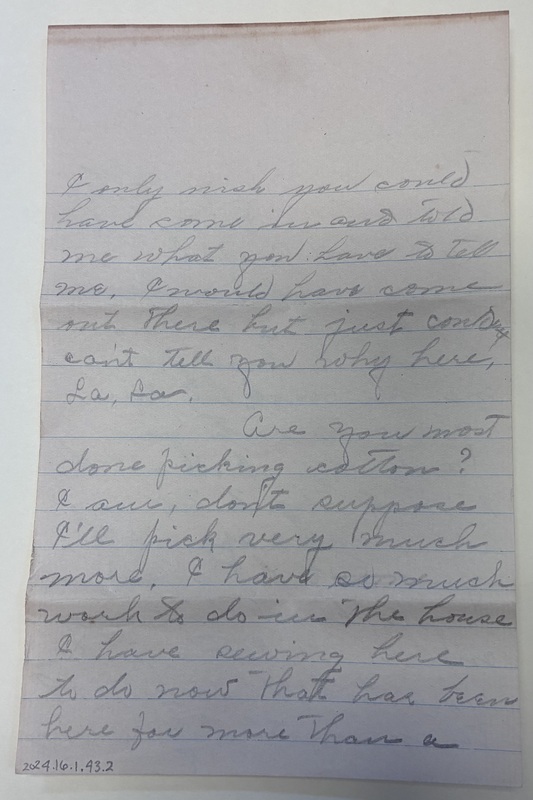 I only wish you could
have come in and told
me what you have to tell
me. I would have come
out there but just
can't tell you why here,
La, La.
Are you most
done picking cotton?
I am, don't suppose
I'll pick very much
more, I have so much
work to do in the house
I have sewing here
to do now that has been
here for more than a
2024.16.1.43.2